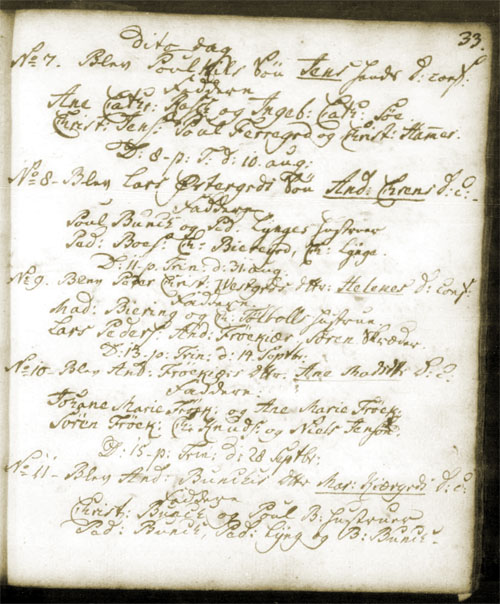 33.
Dito dag
No 7. Blev Poul Nils Søn Jens hands D: conf:
Faddere
Ane Cath: og Ingeb: Cath:
Christ: Jens: Poul Ferregrd og Christ: Hamer.
D: 8-p: T. d: 10 aug:
No 8 - Blev Lars Østergrds Søn And: Chrens D: C:
Faddere
Poul Bunch og Ped: Lynges hustruer
Pad: Boes: Chr: Biergrd, Chr: Lynge.
D: 11 p. Trin: d: 31 aug.
No 9. Blev Peter Christ: Westgrds dttr: Helenes D: conf:
Faddere
Mad: Biering og C: hustrue
Lars Peders: And: Frøekiær Søren Skræder.
D: 13. p: Trin: d: 14 Septbr:
No 10 - Blev And: Froekiærs dttr. Ane D: C:
Faddere:
Johane Marie Frøk: og Ane Marie Froek:
Søren Froek: Chr: Knuds: og Niels Jensøn.
D: 15 - p: Trin: d: 28 Septbr.
No 11 - Blev And: Bunches dttr Mar: Kiærgrds D: C:
Faddere
Christ: Bunch og Poul B: hustruer
Pad: Bunch, Pad: Lyng og B: Bunch -